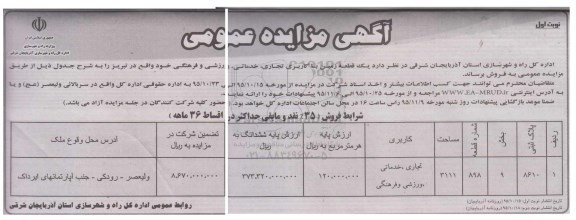 نوبت اول
آگهی مزایده عمومی
اداره کل راه و شهرسازی استان آذربایجان شرقی در نظر دارد یک قطعه زمین با کاربری تجاری، خدماتی، ورزشی و فرهنگی خود واقع در تبریز را به شرح جدول ذیل از طریق
مزایده عمومی به فروش برساند.
متقاضیان محترم می توانند جهت کسب اطلاعات بیشتر و اخذ اسناد شرکت در مزایده از مورخه ۹۵/۱۰/۱۵ الی ۹۵/۱۰/۲۳ به اداره حقوقی اداره کل واقع در سربالائی ولیعصر (عج) و یا
به آدرس اینترنتی WWW.EA-MRUD.ir مراجعه و از مورخه ۹۵/۱۰/۲۵ الی
ضمنا موعد بازگشائی پیشنهادات روز شنبه مورخه ۹۵/۱۱/۹ راس ساعت ۱۲ در محل سالن اجتماعات اداره کل خواهد بود. حضور کلیه شرکت کنندگان در جلسه مزایده آزاد می باشد.
شرایط فروش (۳۵٪ نقد و مابقی حداکثر در اقساط ۳۶ ماهه)
ردیف پلاک ثبتی بخش شماره قطعه مساحت کاربری ارزش پایه هر مترمربع به ریال ارزش پایه ششدانگ به ریال تضمین شرکت در مزایده به ریال آدرس محل وقوع ملک
۱ ۸۶۱۰ ۹ ۸۹۸ ۳۱۱۱ تجاری، خدماتی، ورزشی و فرهنگی ۱۲۰/۰۰۰/۰۰۰ ۳۷۳/۳۲۰/۰۰۰/۰۰۰ ۸/۶۷۰/۰۰۰/۰۰۰ ولیعصر - رودکی - جنب آپارتمانهای ایرداک
روابط عمومی اداره کل راه و شهرسازی استان آذربایجان شرقی